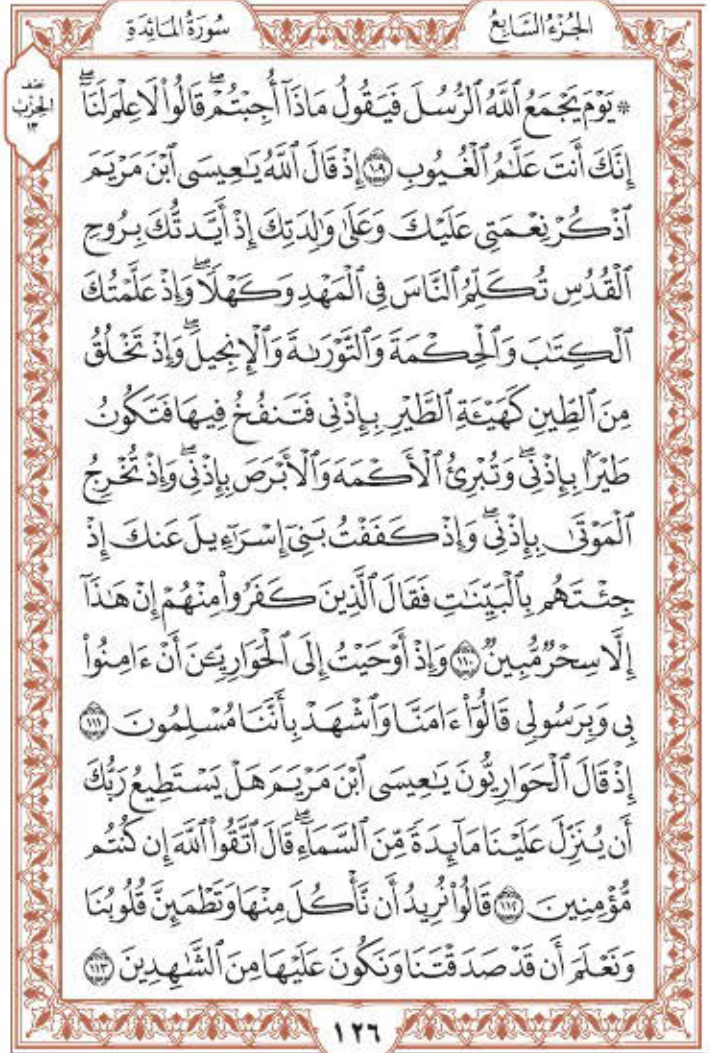 الجُزْءُ السَّابِعُ
سُورَةُ المَائِدَةِ
نصف
الحِزْب
١٣
۞ يَوْمَ يَجْمَعُ ٱللَّهُ ٱلرُّسُلَ فَيَقُولُ مَاذَآ أُجِبْتُمْۖ قَالُوا۟ لَا عِلْمَ لَنَآۖ
إِنَّكَ أَنتَ عَلَّـٰمُ ٱلْغُيُوبِ ۝١٠٩ إِذْ قَالَ ٱللَّهُ يَـٰعِيسَى ٱبْنَ مَرْيَمَ
ٱذْكُرْ نِعْمَتِى عَلَيْكَ وَعَلَىٰ وَٰلِدَتِكَ إِذْ أَيَّدتُّكَ بِرُوحِ
ٱلْقُدُسِ تُكَلِّمُ ٱلنَّاسَ فِى ٱلْمَهْدِ وَكَهْلًاۖ وَإِذْ عَلَّمْتُكَ
ٱلْكِتَـٰبَ وَٱلْحِكْمَةَ وَٱلتَّوْرَىٰةَ وَٱلْإِنجِيلَۖ وَإِذْ تَخْلُقُ
مِنَ ٱلطِّينِ كَهَيْـَٔةِ ٱلطَّيْرِ بِإِذْنِى فَتَنفُخُ فِيهَا فَتَكُونُ
طَيْرًۢا بِإِذْنِىۖ وَتُبْرِئُ ٱلْأَكْمَهَ وَٱلْأَبْرَصَ بِإِذْنِىۖ وَإِذْ تُخْرِجُ
ٱلْمَوْتَىٰ بِإِذْنِىۖ وَإِذْ كَفَفْتُ بَنِىٓ إِسْرَٰٓءِيلَ عَنكَ إِذْ
جِئْتَهُم بِٱلْبَيِّنَـٰتِ فَقَالَ ٱلَّذِينَ كَفَرُوا۟ مِنْهُمْ إِنْ هَـٰذَآ
إِلَّا سِحْرٌ مُّبِينٌ ۝١١٠ وَإِذْ أَوْحَيْتُ إِلَى ٱلْحَوَارِيِّـۧنَ أَنْ ءَامِنُوا۟
بِى وَبِرَسُولِى قَالُوٓا۟ ءَامَنَّا وَٱشْهَدْ بِأَنَّنَا مُسْلِمُونَ ۝١١١
إِذْ قَالَ ٱلْحَوَارِيُّونَ يَـٰعِيسَى ٱبْنَ مَرْيَمَ هَلْ يَسْتَطِيعُ رَبُّكَ
أَن يُنَزِّلَ عَلَيْنَا مَآئِدَةً مِّنَ ٱلسَّمَآءِۖ قَالَ ٱتَّقُوا۟ ٱللَّهَ إِن كُنتُم
مُّؤْمِنِينَ ۝١١٢ قَالُوا۟ نُرِيدُ أَن نَّأْكُلَ مِنْهَا وَتَطْمَئِنَّ قُلُوبُنَا
وَنَعْلَمَ أَن قَدْ صَدَقْتَنَا وَنَكُونَ عَلَيْهَا مِنَ ٱلشَّـٰهِدِينَ ۝١١٣
١٢٦